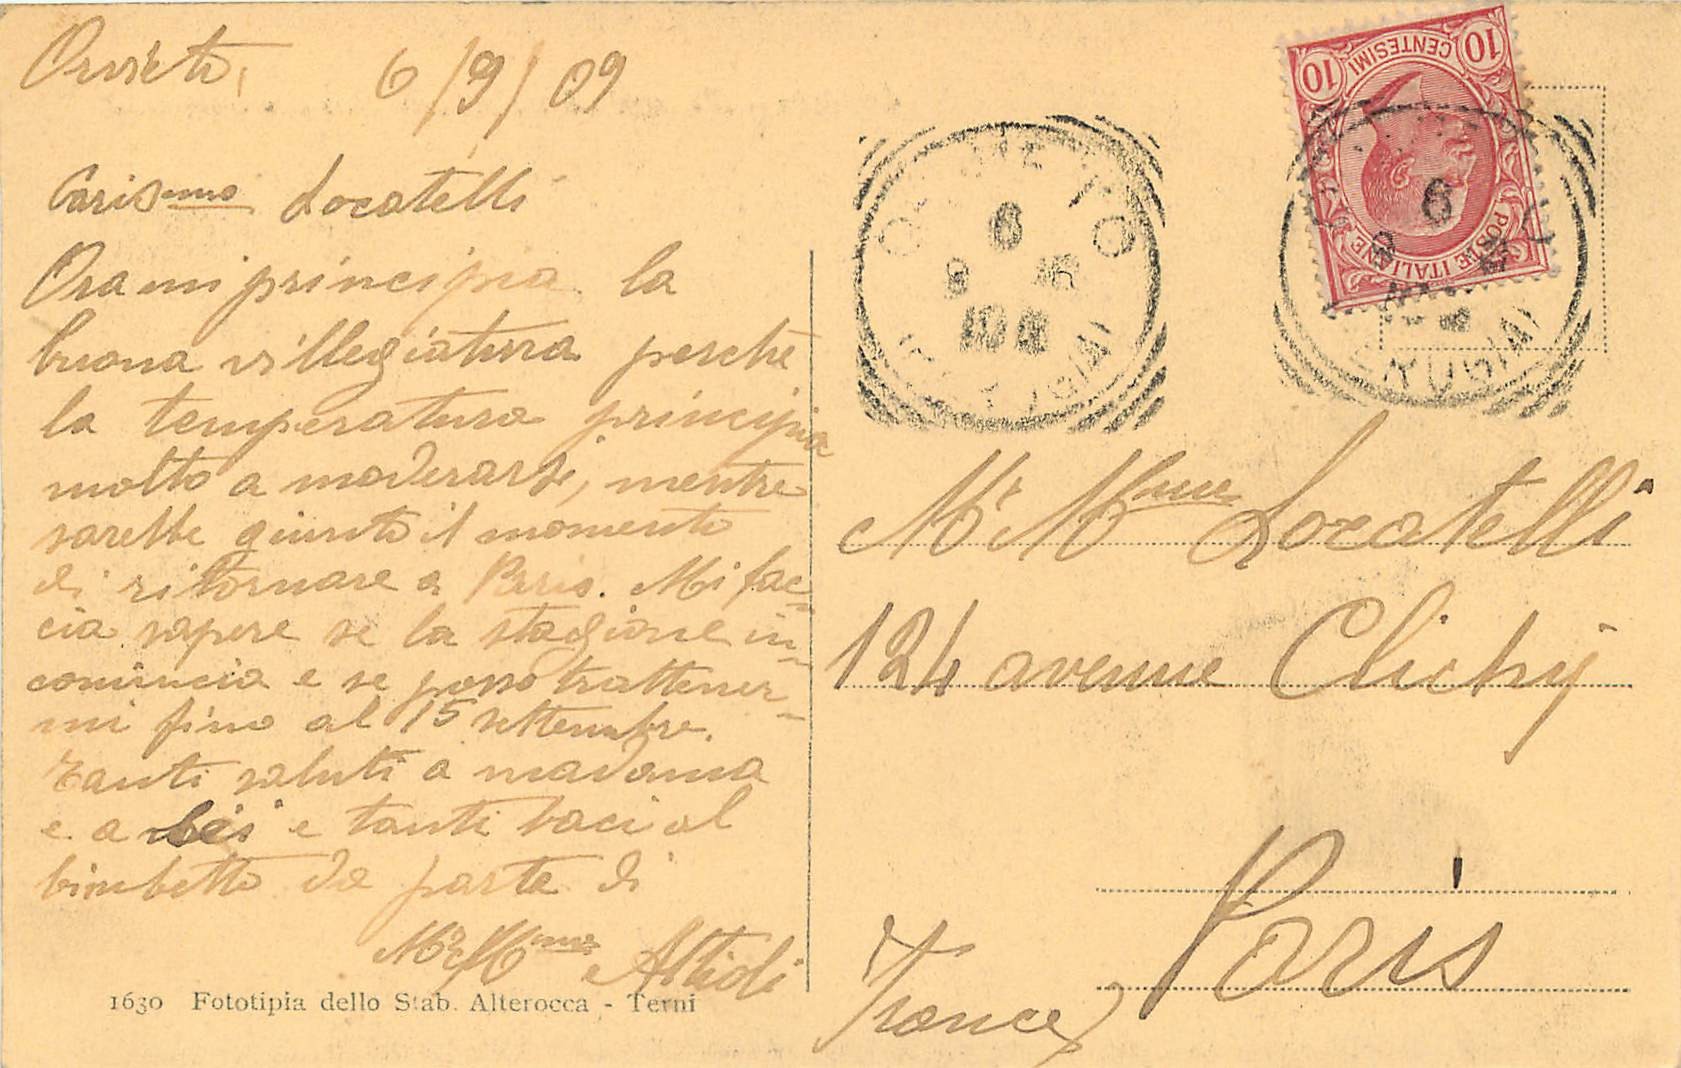 Orvieto, 6/9/09
Carismo Locatelli
Ora mi principia la
buona villegiatura perche
la temperatura principia
molto a moderarsi, mentre
sarebbe giunto il momento
di ritornare a Paris. Mi fac-
cia sapere se la stagione in-
comincia e se posso trattener-
mi fino al 15 settembre.
Tanti saluti a madama
e a Lei e tanti baci al
bimbetto da parte di
Mr Mme
1630 Fototipia dello Stab. Alterocca - Terni
10 CENTESIMI 10
POSTE ITALIANE
Mr Mme Locatelli
124 avenue Clichy
Paris
France